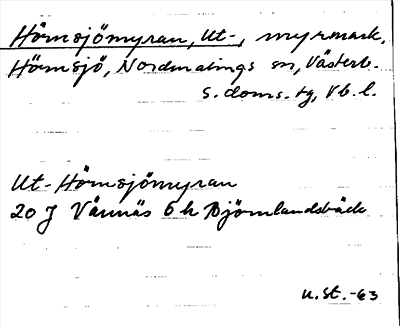 Hörnsjömyran, Ut-, myrmark.
Hörnsjö, Nordmalings sn, Västerb.
s. doms. tg, Vb. l.
Ut-Hörnsjömyran
20 J Vännäs 6 h Björnlandsbäck
u.st.-63